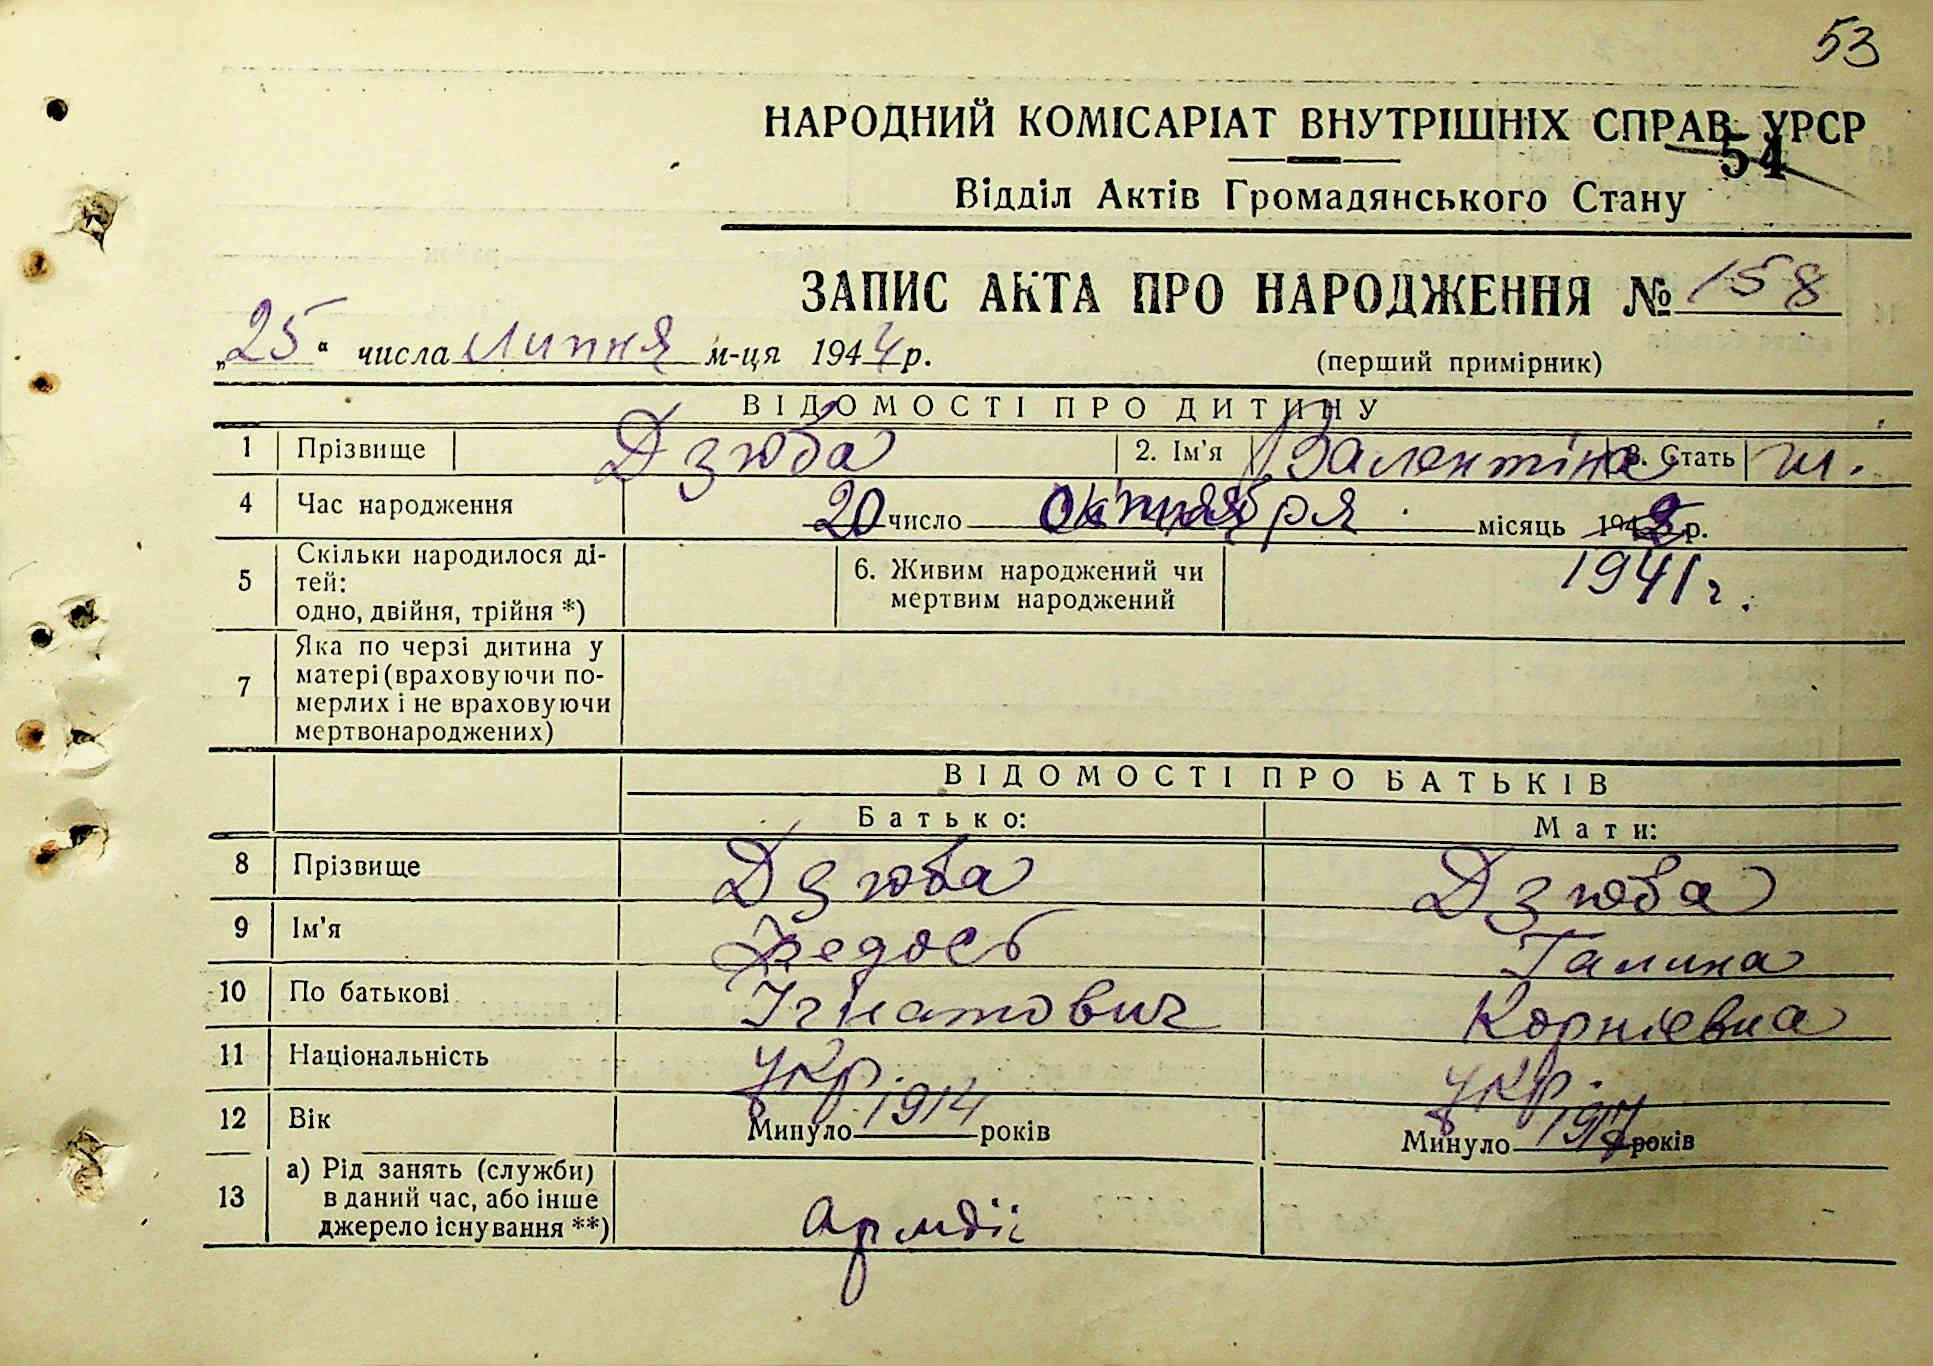 53
НАРОДНИЙ КОМІСАРІАТ ВНУТРІШНІХ СПРАВ УРСР
54
Відділ Актів Громадянського Стану
ЗАПИС АКТА ПРО НАРОДЖЕННЯ № 158
„25“ числа Липня м-ця 1944 р. (перший примірник)
ВІДОМОСТІ ПРО ДИТИНУ
1 Прізвище Дзюба 2. Ім'я Валентіна 3. Стать
4 Час народження 20 число октября місяць 194 р.
1941 г.
5 Скільки народилося ді-
тей:
одно, двійня, трійня *)
6. Живим народжений чи
мертвим народжений
7 Яка по черзі дитина у
матері (враховуючи по-
мерлих і не враховуючи
мертвонароджених)
ВІДОМОСТІ ПРО БАТЬКІВ
Батько: Мати:
8 Прізвище Дзюба Дзюба
9 Ім'я Федось Галина
10 По батькові Ігнатович Корніевна
11 Національність укр. укр.
12 Вік Минуло 1914 років Минуло років
13 а) Рід занять (служби)
в даний час, або інше
джерело існування **)